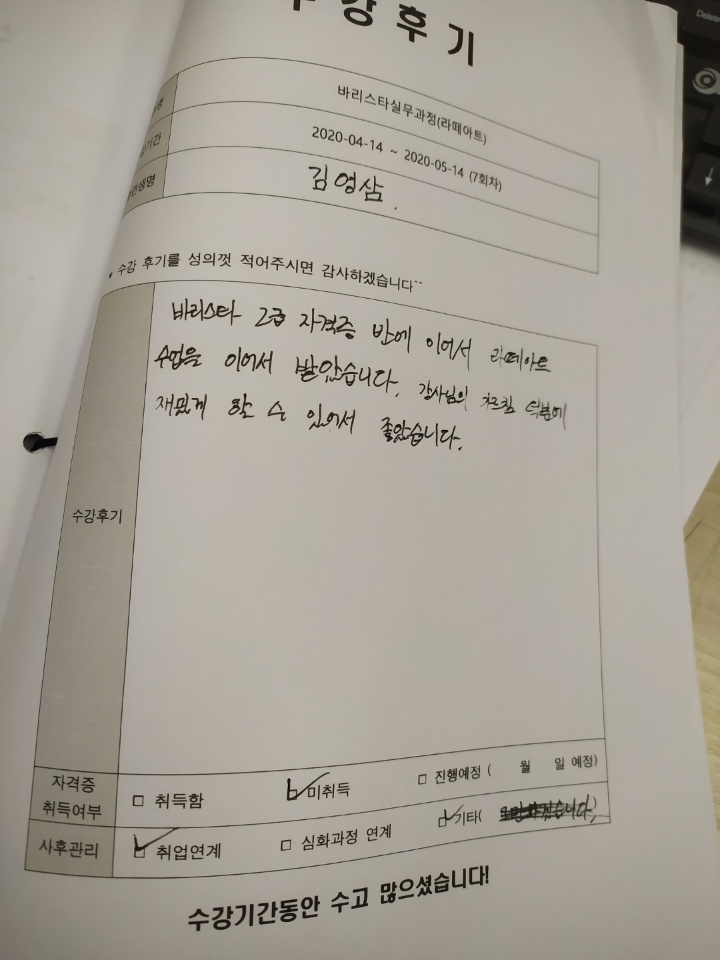 수강후기
바리스타실무과정(라떼아트)
기간 2020-04-14 ~ 2020-05-14 (7회차)
생명 김영삼.
수강 후기를 성의껏 적어주시면 감사하겠습니다^^
바리스타 2급 자격증 반에 이어서 라떼아트
수업을 이어서 받았습니다. 강사님의 덕분에
재밌게 할 수 있어서 좋았습니다.
수강후기
자격증
취득여부 □ 취득함 미취득 □ 진행예정 ( 월 일 예정)
사후관리 □ 취업연계 □ 심화과정 연계 □ 기타( )
수강기간동안 수고 많으셨습니다!
Delete